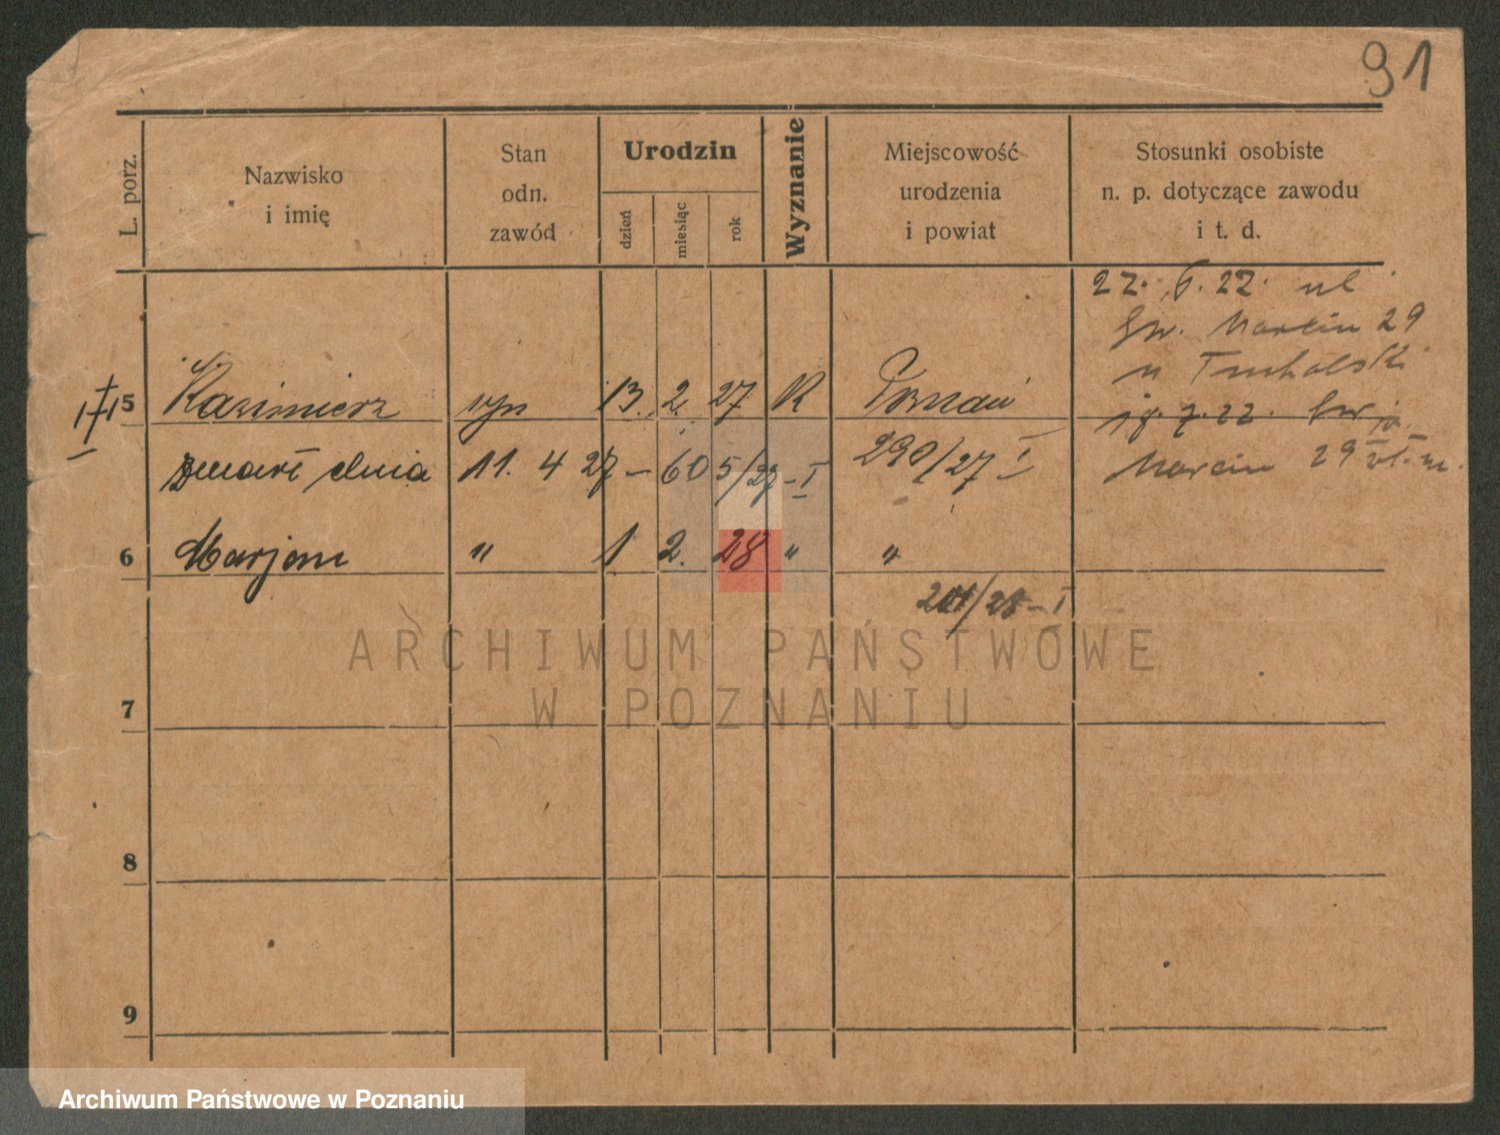 91
L. porz.
Nazwisko
i imię
Stan
odn.
zawód
Urodzin
dzień
miesiąc
rok
Wyznanie
Miejscowość
urodzenia
i powiat
Stosunki osobiste
n. p. dotyczące zawodu
i t. d.
22. 6. 22. ul
Św. Marcin 29
u Tucholski
5 Kazimierz syn 13. 2. 27 R Poznań
18. 7. 22. Św
Marcin 29
zmarł dnia 11. 4 27 – 605/27 – I 290/27 I
6 Marjan " 1 2. 28 " "
201/28 – I
ARCHIWUM PAŃSTWOWE
W POZNANIU
7
8
9
Archiwum Państwowe w Poznaniu